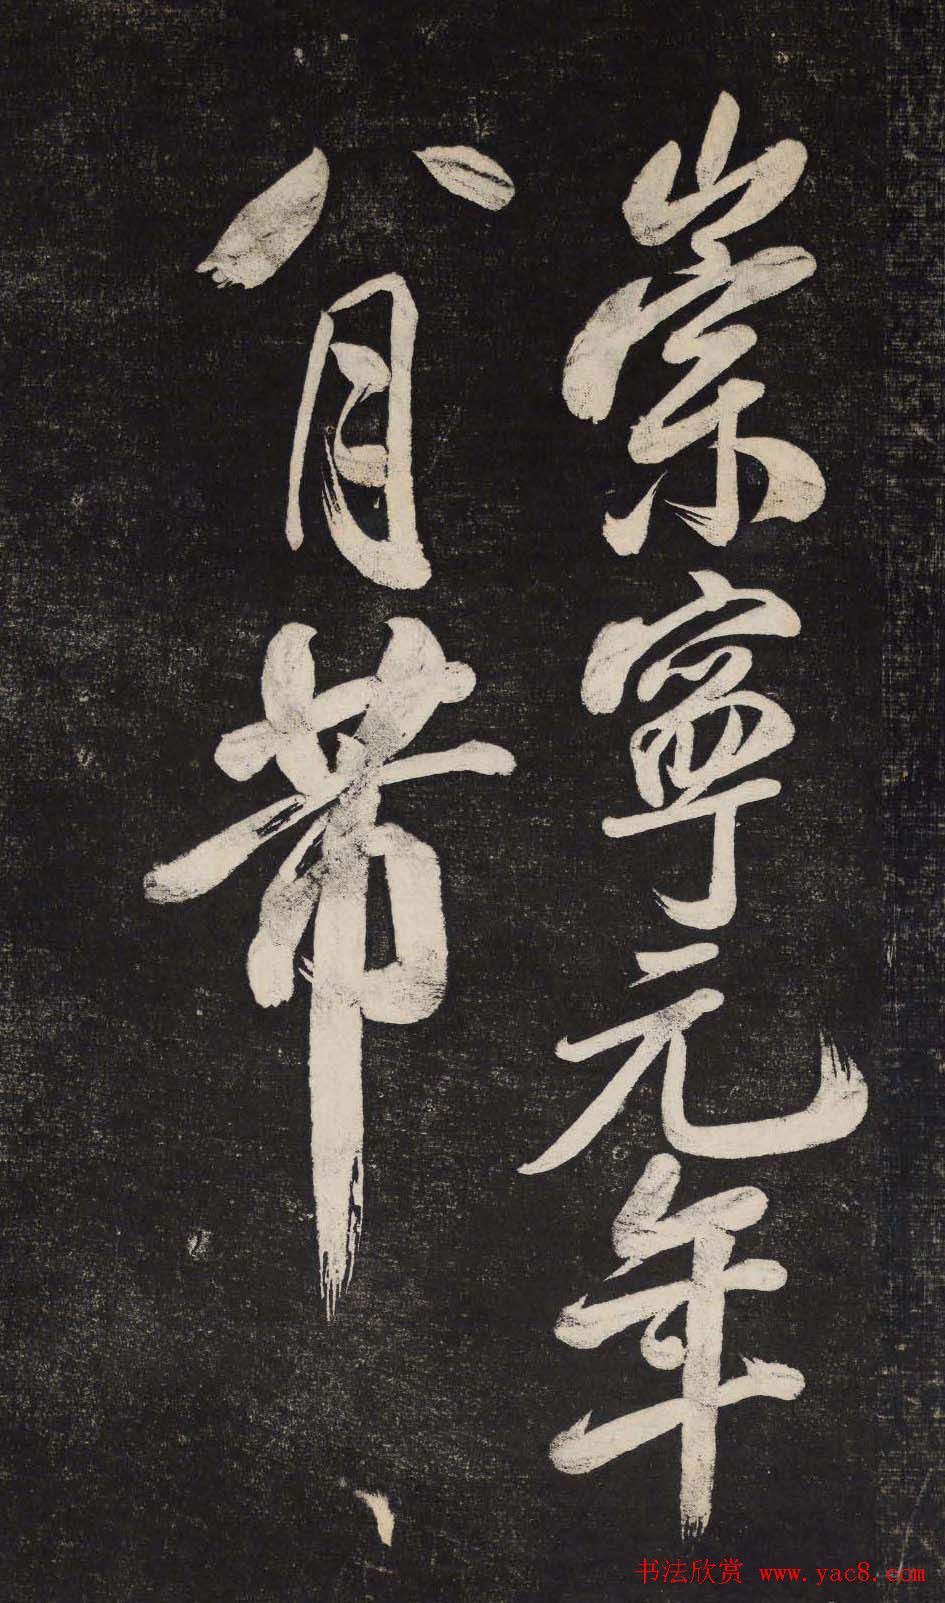 崇寧元年
八月芾
书法欣赏 www.yac8.com